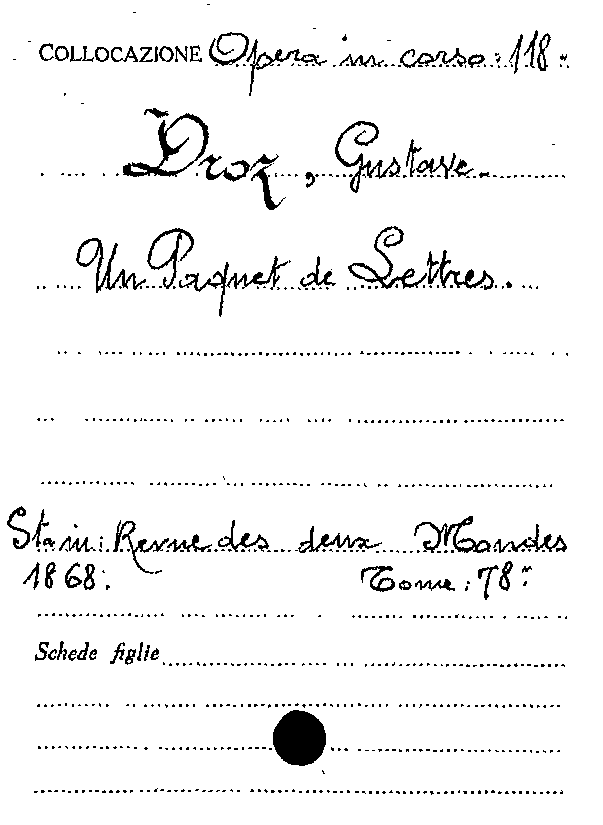 COLLOCAZIONE Opera in corso: 118.
Droz, Gustave.
Un Paquet de Lettres.
Sta in: Revue des deux Mondes
1868. Tome: 78.
Schede figlie